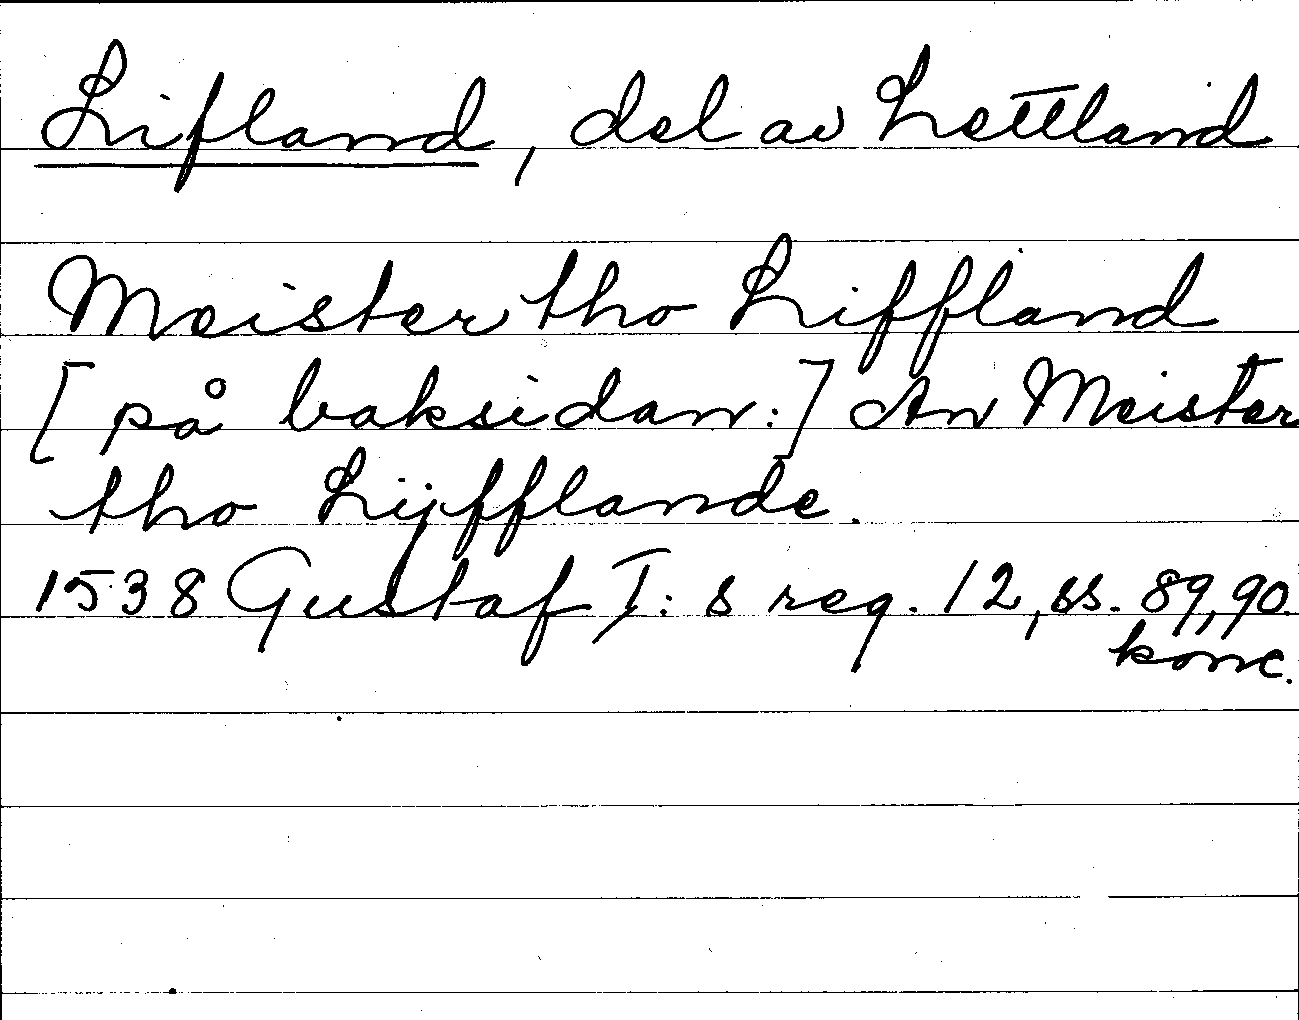 Lifland, del av Lettland
Meister tho Liffland
[på baksidan:] An Meister
tho Lijfflande.
1538 Gustaf I:s reg. 12, ss. 89, 90.
konc.